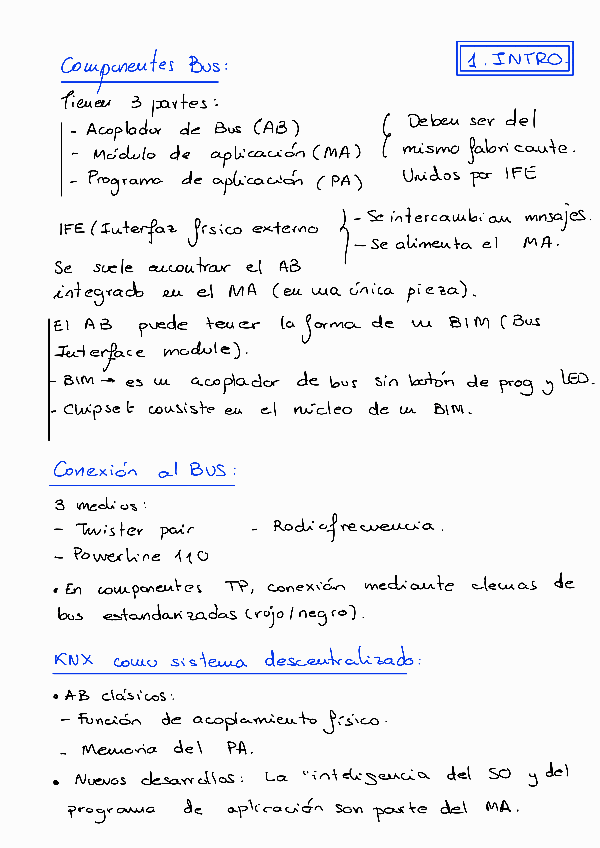 1. INTRO.
Componentes Bus:
Tienen 3 partes:
- Acoplador de Bus (AB)
- Módulo de aplicación (MA)
- Programa de aplicación (PA)
Deben ser del
mismo fabricante.
Unidos por IFE
IFE (Interfaz físico externo
- Se intercambian mnsajes.
- Se alimenta el MA.
Se suele encontrar el AB
integrado en el MA (en una única pieza).
El AB puede tener la forma de un BIM (Bus
Interface module).
- BIM → es un acoplador de bus sin botón de prog y LED.
- Chipset consiste en el núcleo de un BIM.
Conexión al BUS:
3 medios:
- Twister pair - Radiofrecuencia.
- Powerline 110
• En componentes TP, conexión mediante clemas de
bus estandarizadas (rojo/negro).
KNX como sistema descentralizado:
• AB clásicos:
- Función de acoplamiento físico.
- Memoria del PA.
• Nuevos desarrollos: La "inteligencia del SO y del
programa de aplicación son parte del MA.